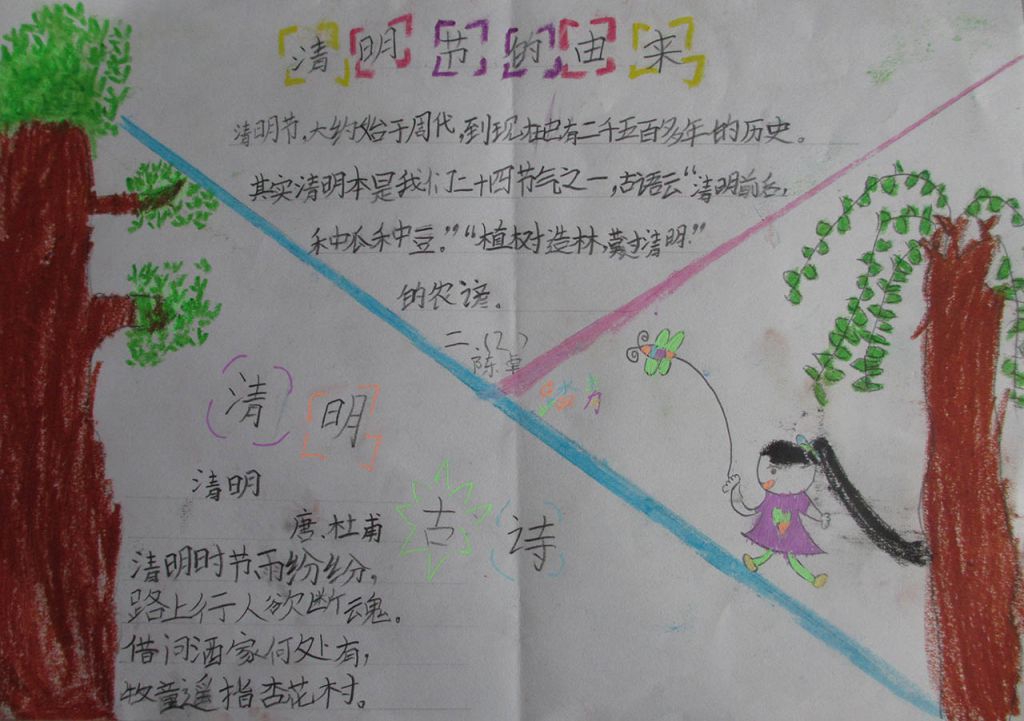 清明节的由来
清明节,大约始于周代,到现在已有二千五百多年的历史。
其实清明本是我们二十四节气之一,古语云“清明前后,
种瓜种豆。”“植树造林,莫过清明。”
的农谚。
二.(2)
陈卓
踏青
清明
古诗
清明
唐.杜甫
清明时节雨纷纷,
路上行人欲断魂。
借问酒家何处有,
牧童遥指杏花村。